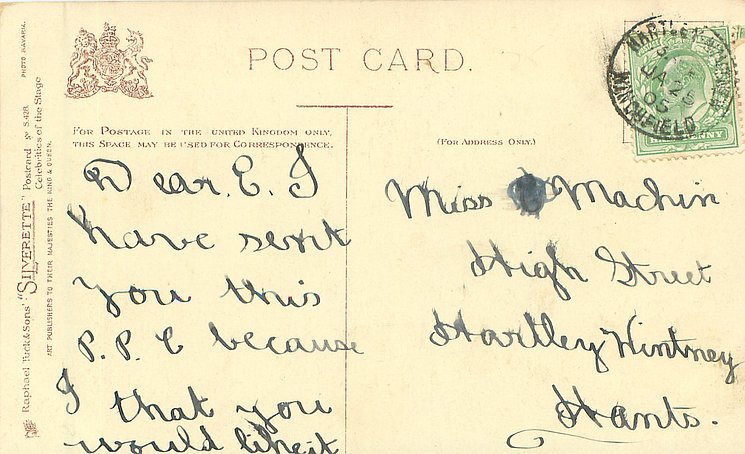 POST CARD.
FOR POSTAGE IN THE UNITED KINGDOM ONLY,
THIS SPACE MAY BE USED FOR CORRESPONDENCE.
(FOR ADDRESS ONLY.)
Dear. E. I
have sent
you this
P. P. C because
I that you
would like it
Miss Machin
High Street
Hartley Wintney
Hants.
HARTLEY WINTNEY
JA 25
05
WINCHFIELD
HALFPENNY
Raphael Tuck & Sons' "SILVERETTE" Postcard No S.428.
Celebrities of the Stage
PHOTO BAVARIA.
ART PUBLISHERS TO THEIR MAJESTIES THE KING & QUEEN.